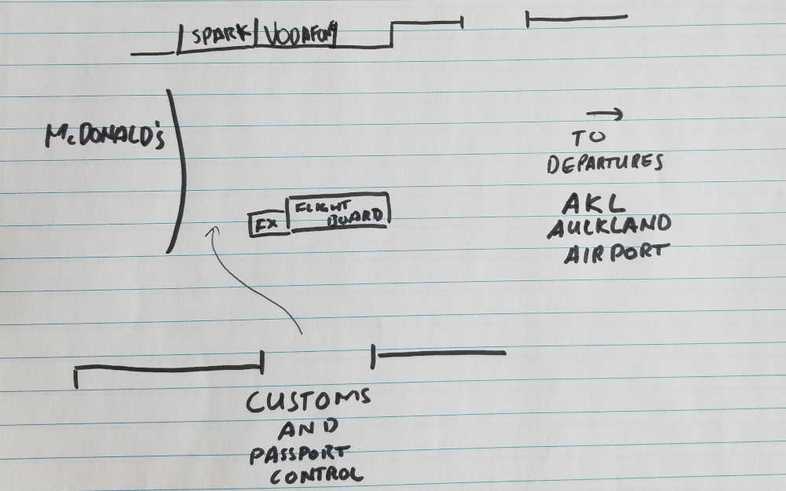 SPARK VODAFONE
McDONALD's
TO
DEPARTURES
FLIGHT
BOARD
FX
AKL
AUCKLAND
AIRPORT
CUSTOMS
AND
PASSPORT
CONTROL